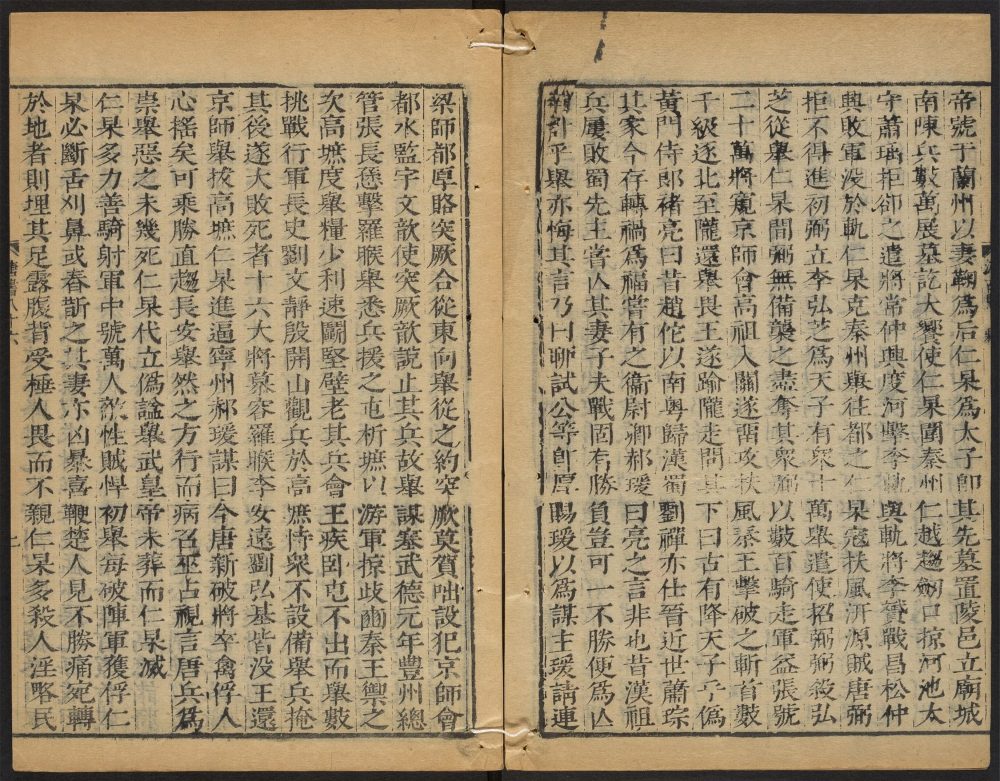 帝號于蘭州以妻鞠爲后仁杲爲太子即其先墓置陵邑立廟城
南陳兵數萬展墓訖大饗使仁杲圍秦州仁越趨劒口掠河池太
守蕭瑀拒卻之遣將常仲興度河擊李軌與軌將李贇戰昌松仲
興敗軍没於軌仁杲克秦州舉往都之仁杲寇扶風汧源賊唐弼
拒不得進初弼立李弘芝爲天子有衆十萬舉遣使招弼弼殺弘
芝從舉仁杲間弼無備襲之盡奪其衆弼以數百騎走軍益張號
二十萬將窺京師會高祖入關遂留攻扶風秦王擊破之斬首數
千級逐北至隴還舉畏王遂踰隴走問其下曰古有降天子乎僞
黄門侍郎褚亮曰昔趙佗以南粤歸漢蜀劉禪亦仕晉近世蕭琮
其家今存轉禍爲福嘗有之衞尉卿郝瑗曰亮之言非也昔漢祖
兵屢敗蜀先王嘗亾其妻子夫戰固有勝負豈可一不勝便爲亾
國計乎舉亦悔其言乃曰聊試公等卽厚賜瑗以爲謀主瑗請連
梁師都厚賂突厥合從東向舉從之約突厥莫賀咄設犯京師會
都水監宇文歆使突厥歆説止其兵故舉謀塞武德元年豐州總
管張長愻擊羅㬋舉悉兵援之屯析墌以游軍掠歧豳秦王禦之
次高墌度舉糧少利速鬭堅壁老其兵會王疾卧屯不出而舉數
挑戰行軍長史劉文靜殷開山觀兵於高墌恃衆不設備舉兵掩
其後遂大敗死者十六大將慕容羅㬋李安遠劉弘基皆没王還
京師舉拔高墌仁杲進逼寧州郝瑗謀曰今唐新破將卒禽俘人
心揺矣可乘勝直趨長安舉然之方行而病召巫占視言唐兵爲
祟舉惡之未幾死仁杲代立僞諡舉武皇帝未葬而仁杲滅
仁杲多力善騎射軍中號萬人敵性賊悍初舉每破陣軍獲俘仁
杲必斷舌刈鼻或舂斮之其妻亦凶暴喜鞭楚人見不勝痛宛轉
於地者則埋其足露腹背受棰人畏而不親仁杲多殺人淫略民